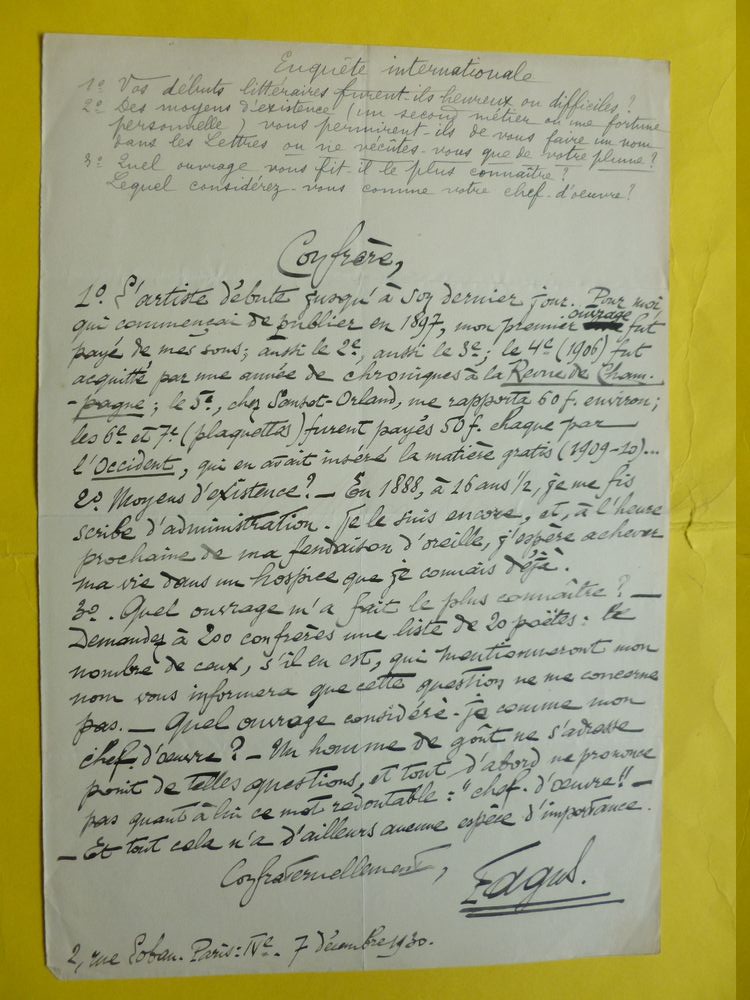 Enquête internationale
1º Vos débuts littéraires furent-ils heureux ou difficiles ?
2º Des moyens d'existence (un second métier ou une fortune
personnelle) vous permirent-ils de vous faire un nom
dans les Lettres ou ne vécûtes-vous que de votre plume ?
3º Quel ouvrage vous fit-il le plus connaître ?
Lequel considérez-vous comme votre chef-d'oeuvre ?
Confrère,
1º L'artiste débute jusqu'à son dernier jour. Pour moi
qui commençai de publier en 1897, mon premier ouvrage fut
payé de mes sous ; aussi le 2e, aussi le 3e ; le 4e (1906) fut
acquitté par une année de chroniques à la Revue de Cham-
-pagne ; le 5e, chez Sansot-Orland, me rapporta 60 f. environ ;
les 6e et 7e (plaquettes) furent payés 50 f. chaque par
l'Occident, qui en avait inséré la matière gratis (1909-10)...
2º Moyens d'existence ? — En 1888, à 16 ans ½, je me fis
scribe d'administration. Je le suis encore, et, à l'heure
prochaine de ma fendaison d'oreille, j'espère achever
ma vie dans un hospice que je connais déjà.
3º. Quel ouvrage m'a fait le plus connaître ? —
Demandez à 200 confrères une liste de 20 poètes : le
nombre de ceux, s'il en est, qui mentionneront mon
nom vous informera que cette question ne me concerne
pas. — Quel ouvrage considéré-je comme mon
chef-d'œuvre ? — Un homme de goût ne s'adresse
point de telles questions, et tout d'abord ne prononce
pas quant à lui ce mot redoutable : "chef-d'œuvre !! —
— Et tout cela n'a d'ailleurs aucune espèce d'importance.
Confraternellement,
Fagus.
2, rue Lobau. Paris : IVe. 7 décembre 1930.